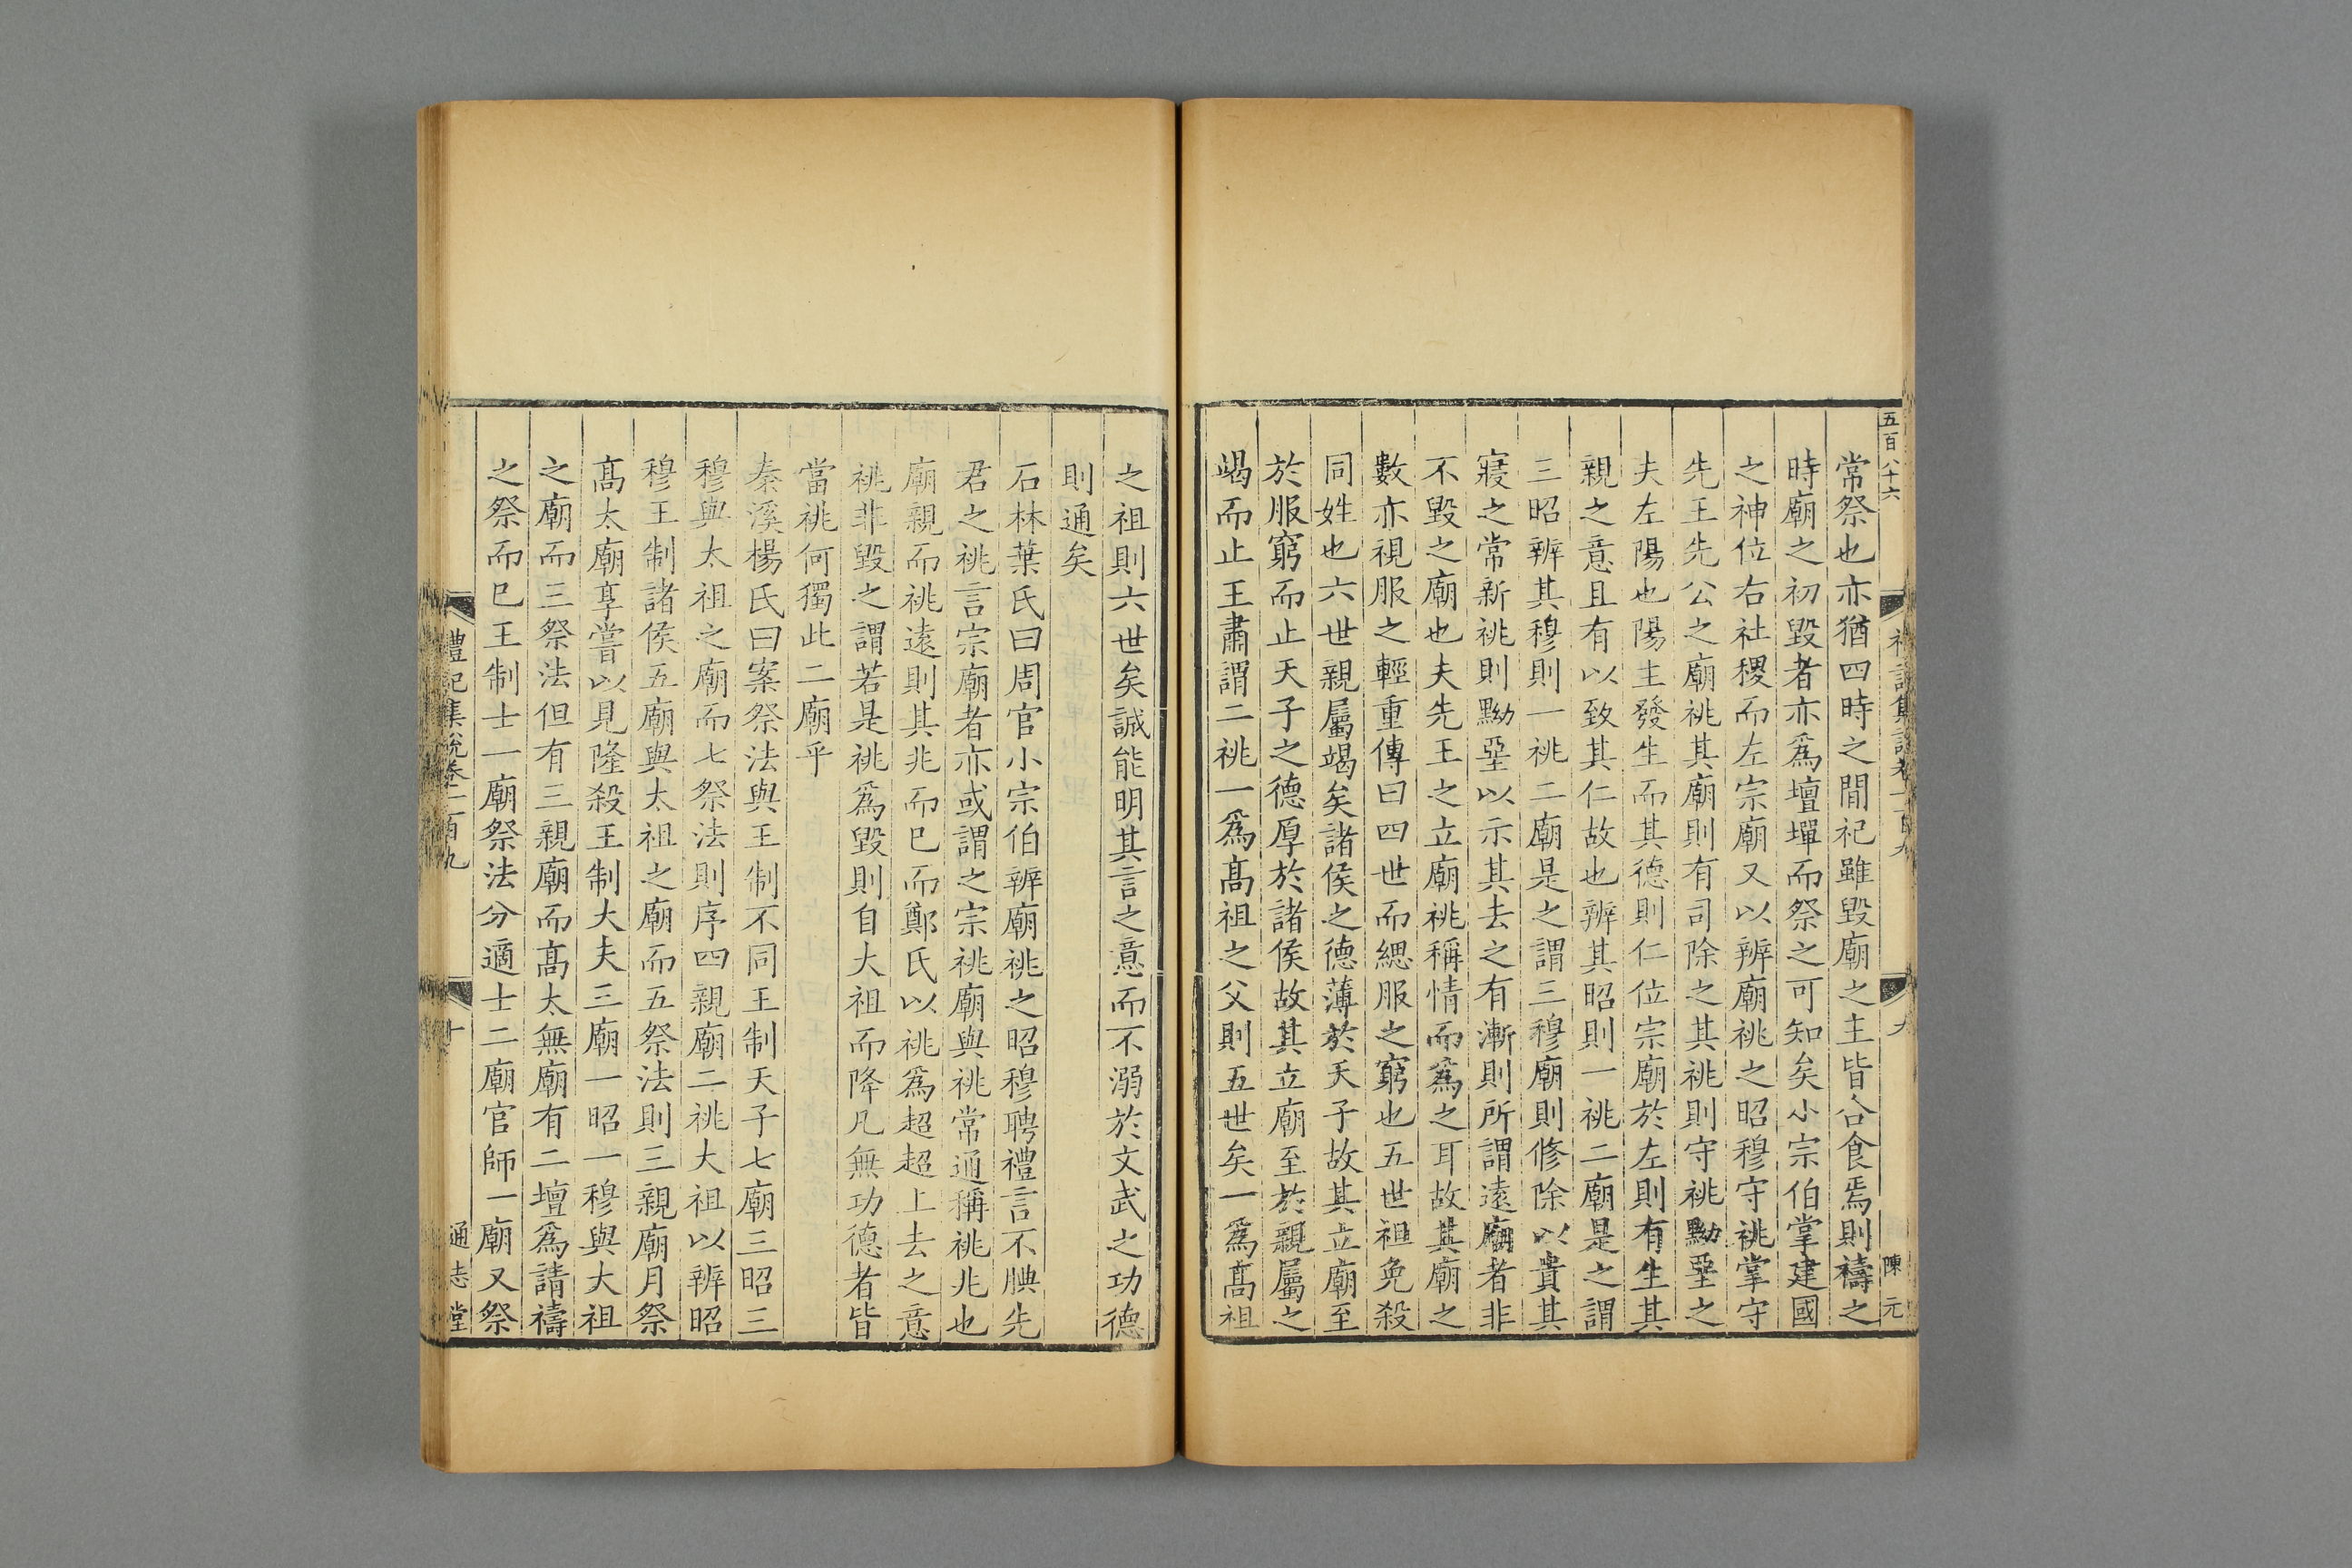 五百八十六
禮記集說卷一百九
九
陳元
常祭也亦猶四時之間祀雖毀廟之主皆合食焉則禱之
時廟之初毀者亦爲壇墠而祭之可知矣小宗伯掌建國
之神位右社稷而左宗廟又以辨廟祧之昭穆守祧掌守
先王先公之廟祧其廟則有司除之其祧則守祧黝堊之
夫左陽也陽主發生而其德則仁位宗廟於左則有生其
親之意且有以致其仁故也辨其昭則一祧二廟是之謂
三昭辨其穆則一祧二廟是之謂三穆廟則修除以貴其
寢之常新祧則黝堊以示其去之有漸則所謂遠廟者非
不毀之廟也夫先王之立廟祧稱情而爲之耳故其廟之
數亦視服之輕重傳曰四世而緦服之窮也五世祖免殺
同姓也六世親屬竭矣諸侯之德薄於天子故其立廟至
於服窮而止天子之德厚於諸侯故其立廟至於親屬之
竭而止王肅謂二祧一爲高祖之父則五世矣一爲高祖
之祖則六世矣誠能明其言之意而不溺於文武之功德
則通矣
石林葉氏曰周官小宗伯辨廟祧之昭穆聘禮言不腆先
君之祧言宗廟者亦或謂之宗祧廟與祧常通稱祧兆也
廟親而祧遠則其兆而已而鄭氏以祧爲超超上去之意
祧非毀之謂若是祧爲毀則自大祖而降凡無功德者皆
當祧何獨此二廟乎
秦溪楊氏曰案祭法與王制不同王制天子七廟三昭三
穆與太祖之廟而七祭法則序四親廟二祧大祖以辨昭
穆王制諸侯五廟與太祖之廟而五祭法則三親廟月祭
高太廟享嘗以見隆殺王制大夫三廟一昭一穆與大祖
之廟而三祭法但有三親廟而高太無廟有二壇爲請禱
之祭而已王制士一廟祭法分適士二廟官師一廟又祭
禮記集說卷一百九
十
通志堂